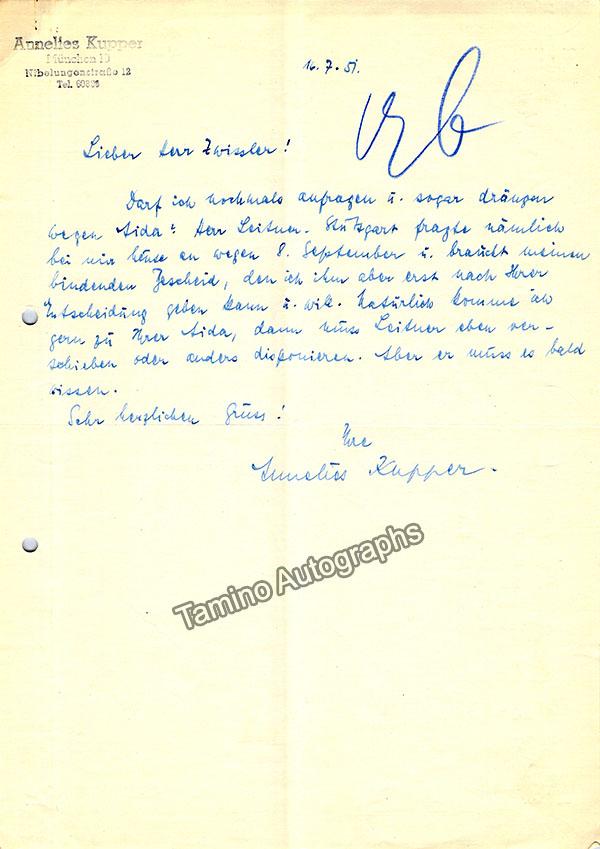 Annelies Kupper
München 19
Nibelungenstraße 12
Tel. 60836
16.7.51.
Lieber Herr Zwissler!
Darf ich nochmals anfragen u. sogar drängen
wegen Aida: Herr Leitner. Stuttgart fragte nämlich
bei mir heute an wegen 8. September u. braucht meinen
bindenden Bescheid, den ich ihm aber erst nach Ihrer
Entscheidung geben kann u. will. Natürlich komme ich
gern zu Ihrer Aida, dann muss Leitner eben ver-
schieben oder anders disponieren. Aber er muss es bald
wissen.
Sehr herzlichen Gruss!
Ihre
Annelies Kupper.
Tamino Autographs